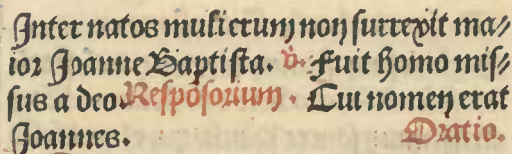 Inter natos mulierum non surrexit ma⸗
ior Joanne Baptista. v. Fuit homo mis⸗
sus a deo. Respōsorium. Cui nomen erat
Joannes. Oratio.